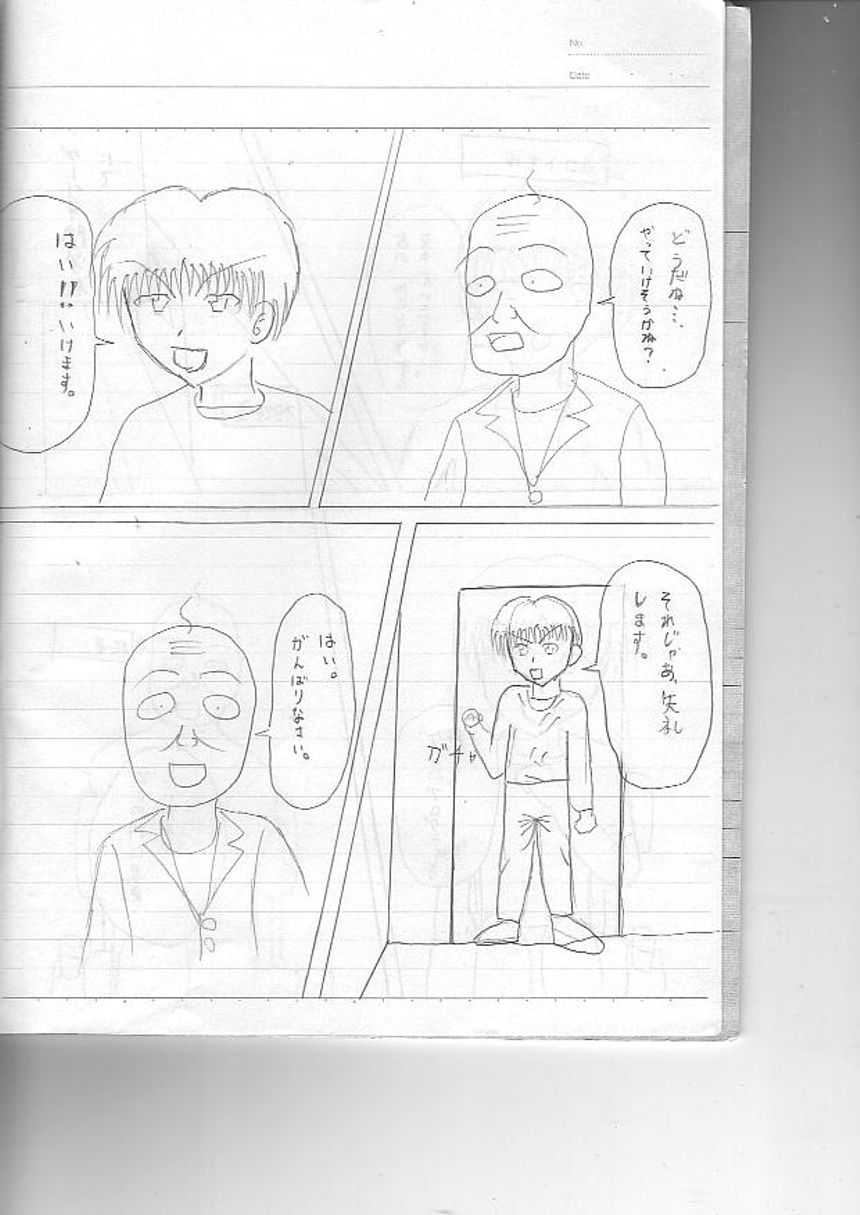 No.
Date
どうだね…
やっていけそうかね?
はい!!
いけます。
それじゃあ、失礼
します。
ガチャ
はい。
がんばりなさい。